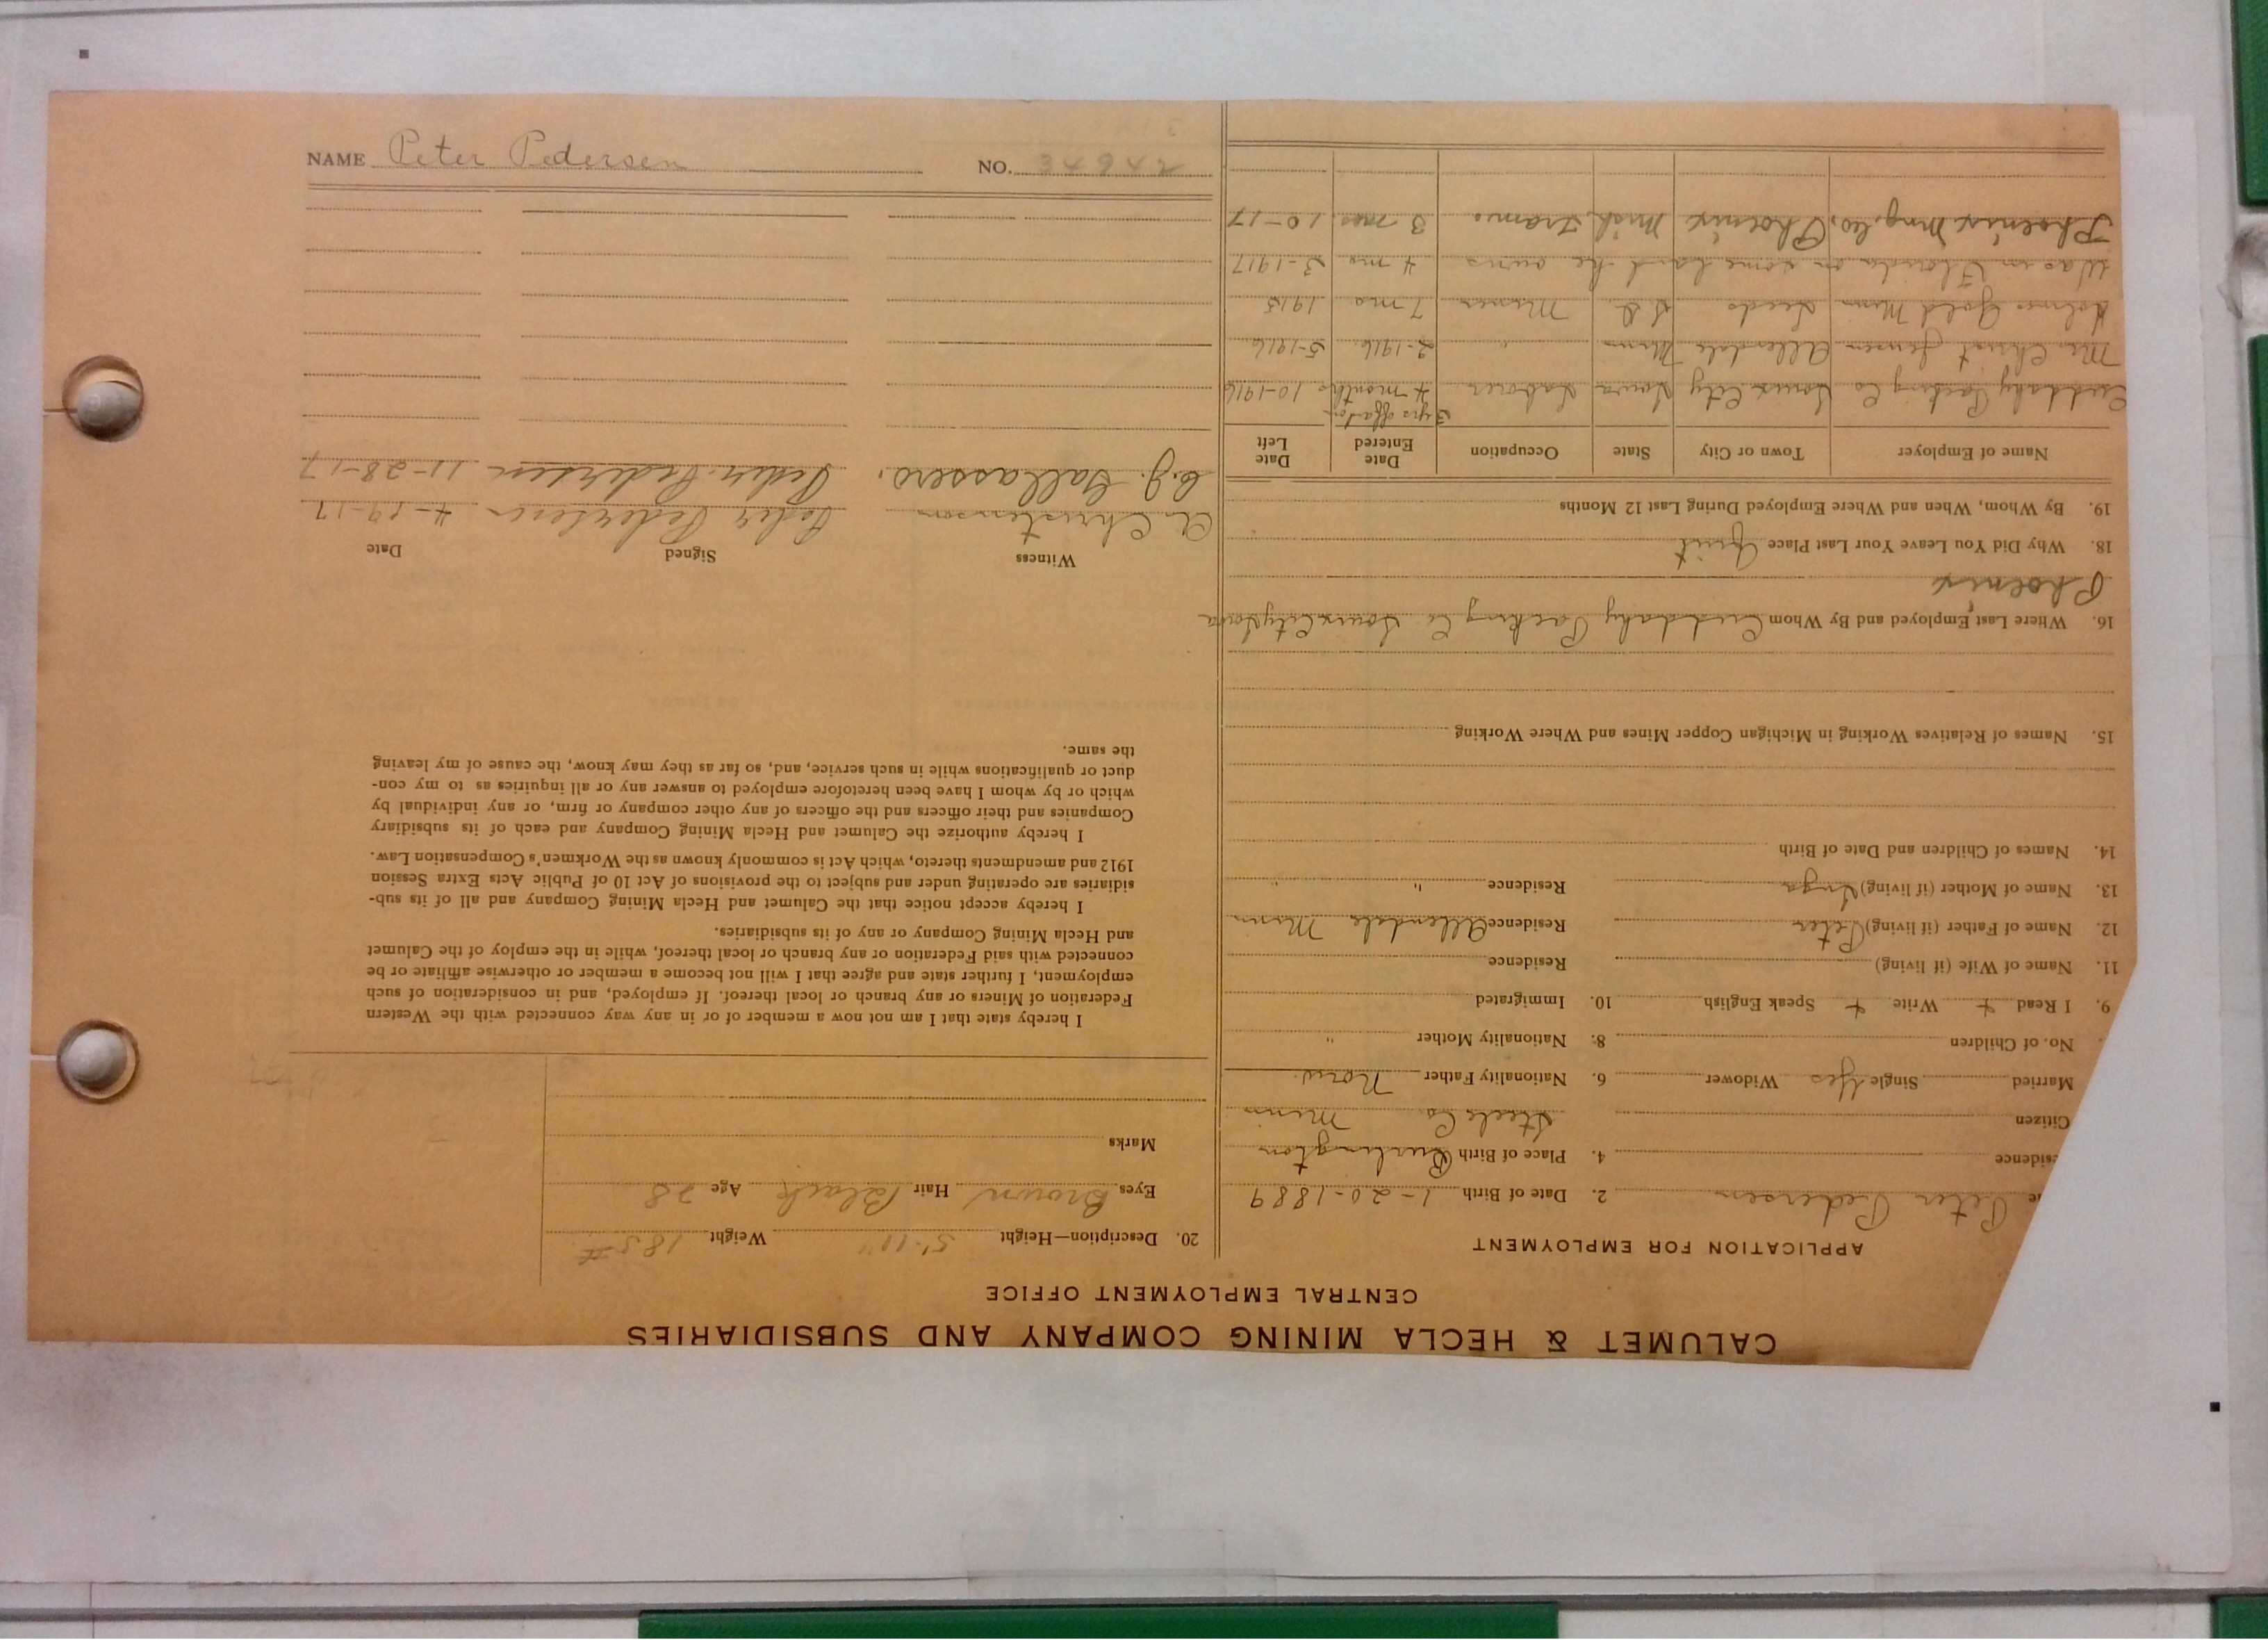 CALUMET & HECLA MINING COMPANY AND SUBSIDIARIES
CENTRAL EMPLOYMENT OFFICE
APPLICATION FOR EMPLOYMENT
me Peter Pedersen 2. Date of Birth 1-20-1889
sidence 4. Place of Birth Burlington
Citizen Steele Co Minn
Married Single Yes Widower 6. Nationality Father Norw.
No. of Children 8. Nationality Mother "
9. I Read + Write + Speak English 10. Immigrated
11. Name of Wife (if living) Residence
12. Name of Father (if living) Peter Residence Allendale Minn
13. Name of Mother (if living) Inga Residence " "
14. Names of Children and Date of Birth
15. Names of Relatives Working in Michigan Copper Mines and Where Working
16. Where Last Employed and By Whom Cuddahy Packing Co Souix City Iowa
Phoenix
18. Why Did You Leave Your Last Place Quit
19. By Whom, When and Where Employed During Last 12 Months
Name of Employer Town or City State Occupation Date Entered Date Left
3 yrs off and on
Cuddahy Packing Co Souix City Iowa Laborer 4 months 10-1916
Mr. Christ Jensen Allendale Minn " 2-1916. 5-1916.
Gold Mine Leeds S.D. Miner 7 mo 1915
Was in Florida on some land he owns 4 mo 3-1917
Phoenix Mng. Co, Phoenix Mich. Tram. 3 mos. 10-17
20. Description—Height 5'-10" Weight 185#
Eyes Brown Hair Black Age 28
Marks
I hereby state that I am not now a member of or in any way connected with the Western
Federation of Miners or any branch or local thereof. If employed, and in consideration of such
employment, I further state and agree that I will not become a member or otherwise affiliate or be
connected with said Federation or any branch or local thereof, while in the employ of the Calumet
and Hecla Mining Company or any of its subsidiaries.
I hereby accept notice that the Calumet and Hecla Mining Company and all of its sub-
sidiaries are operating under and subject to the provisions of Act 10 of Public Acts Extra Session
1912 and amendments thereto, which Act is commonly known as the Workmen's Compensation Law.
I hereby authorize the Calumet and Hecla Mining Company and each of its subsidiary
Companies and their officers and the officers of any other company or firm, or any individual by
which or by whom I have been heretofore employed to answer any or all inquiries as to my con-
duct or qualifications while in such service, and, so far as they may know, the cause of my leaving
the same.
Witness Signed Date
A. Christenson Peder Pedersen 4-19-17
C.J. Gallassero. Peder Pedersen 11-28-17
NAME Peter Pedersen NO. 34642